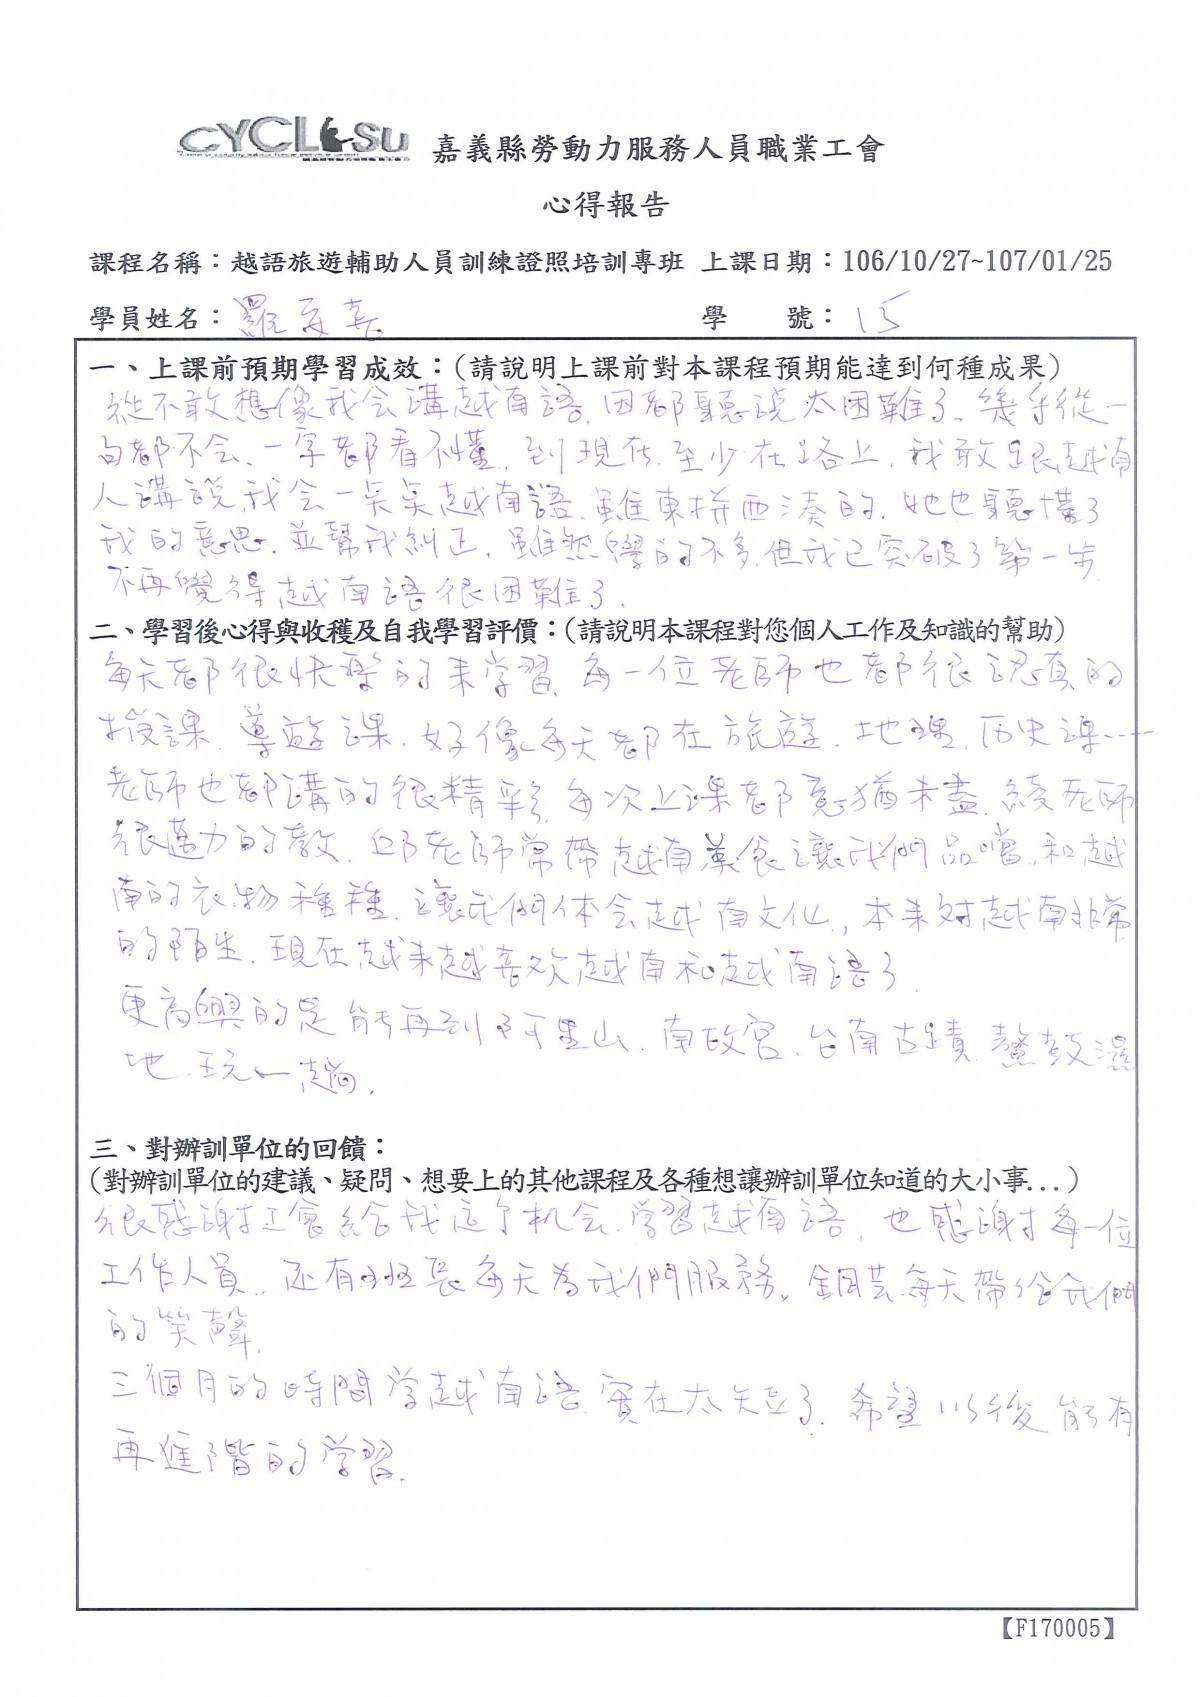 CYCLSU 嘉義縣勞動力服務人員職業工會
心得報告
課程名稱：越語旅遊輔助人員訓練證照培訓專班 上課日期：106/10/27~107/01/25
學員姓名：羅 嘉 學 號：15
一、上課前預期學習成效：(請說明上課前對本課程預期能達到何種成果)
從不敢想像我会講越南語，因都聽說太困難了、幾乎從一
句都不会、一字都看不懂，到現在，至少在路上，我敢跟越南
人講說我会一点点越南語，雖東拼西湊的，她也聽懂了
我的意思，並幫我糾正，雖然學的不多，但我已突破了第一步
不再覺得越南語很困難了．
二、學習後心得與收穫及自我學習評價：(請說明本課程對您個人工作及知識的幫助)
每天都很快樂的來学習，每一位老師也都很認真的
授課．導遊課．好像每天都在旅遊．地理．历史課‥‥
老師也都講的很精彩，每次上課都意猶未盡．老師
很邁力的教．邱老師常帶越南美食讓我們品嚐，和越
南的衣物種種．讓我們体会越南文化，本來对越南非常
的陌生．現在越來越喜欢越南和越南語了．
更高興的是能再到阿里山．南故宮．台南古蹟．鰲鼓濕
地．玩一趟．
三、對辦訓單位的回饋：
(對辦訓單位的建議、疑問、想要上的其他課程及各種想讓辦訓單位知道的大小事...)
很感謝工會給我這个机会．学習越南語，也感謝每一位
工作人員．还有班長每天為我們服務。每天帶给我們
的笑聲．
三個月的時間学越南語．實在太短了．希望以後能有
再進階的学習．
【F170005】